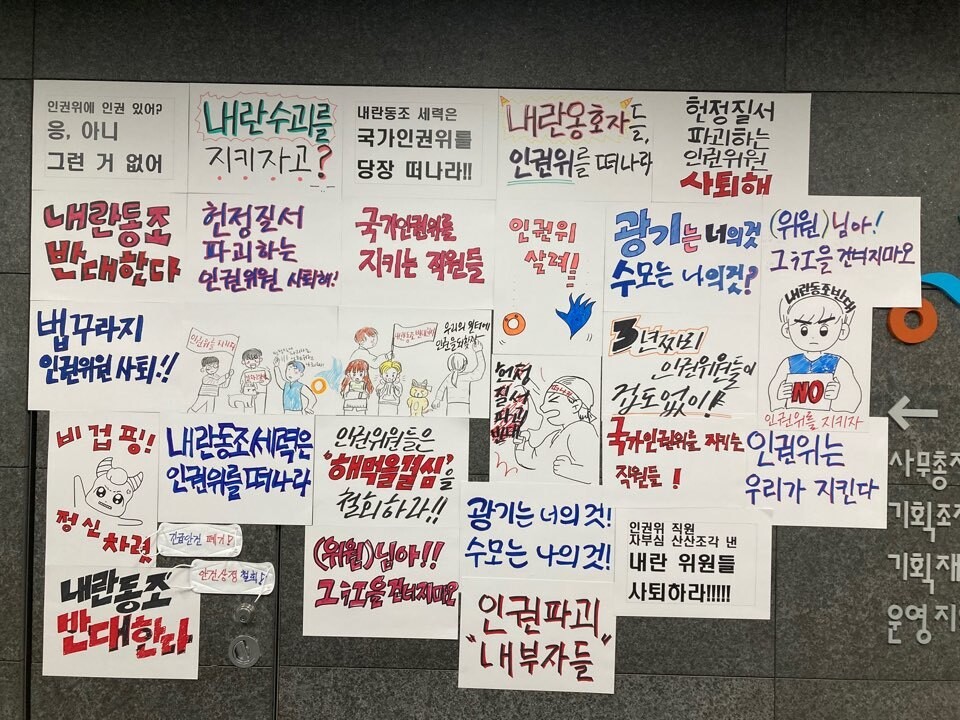 인권위에 인권 있어?
응, 아니
그런 거 없어
내란수괴를
지키자고?
내란동조 세력은
국가인권위를
당장 떠나라!!
내란옹호자들,
인권위를 떠나라
헌정질서
파괴하는
인권위원
사퇴해
내란동조
반대한다
헌정질서
파괴하는
인권위원 사퇴해!
국가인권위를
지키는 직원들
인권위
살려!!
광기는 너의것
수모는 나의것?
(위원)님아!
그 江을 건너지마오
법꾸라지
인권위원 사퇴!!
우리의 일터에
헌정
질서
파괴
반대
3년짜리
인권위원들이
겁도없이!
내란동조반대
NO
인권위를 지키자
비겁핑!!
정신
차렷
내란동조세력은
인권위를 떠나라
인권위원들은
'해먹을결심'을
철회하라!!
국가인권위를 지키는
직원들!
인권위는
우리가 지킨다
긴급안건 폐기!
안건상정 철회!
(위원)님아!!
그 江을 건너지마오
광기는 너의것!
수모는 나의것!
인권위 직원
자부심 산산조각 낸
내란 위원들
사퇴하라!!!!!
내란동조
반대한다
인권파괴
"내부자들"
사무총
기획조
기획재
운영지